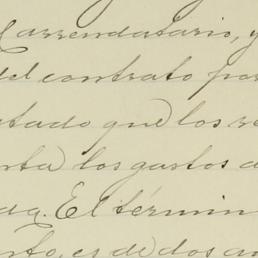 l arrendatario, y
del contrato por
tado que los re
rta los gastos d
da. El términ
rto, es de dos añ